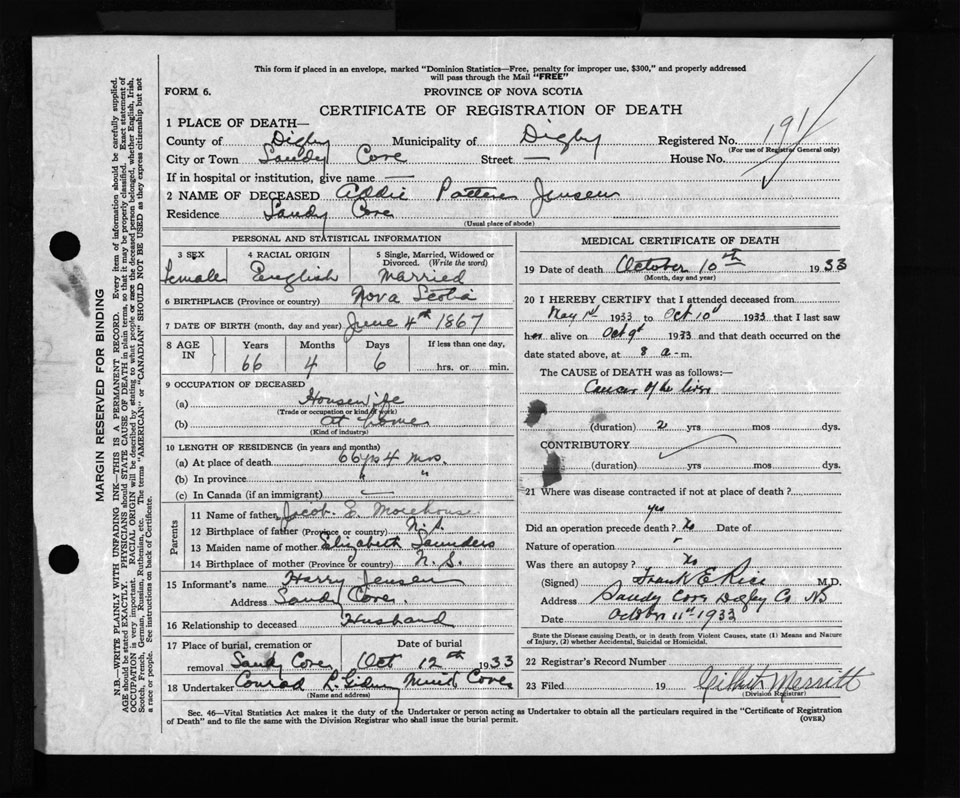 This form if placed in an envelope, marked "Dominion Statistics—Free, penalty for improper use, $300," and properly addressed
will pass through the Mail "FREE"
FORM 6.
PROVINCE OF NOVA SCOTIA
CERTIFICATE OF REGISTRATION OF DEATH
1 PLACE OF DEATH—
County of Digby Municipality of Digby Registered No. 191
(For use of Registrar General only)
City or Town Sandy Cove Street — House No.
If in hospital or institution, give name —
2 NAME OF DECEASED Addie Jensen
Residence Sandy Cove
(Usual place of abode)
PERSONAL AND STATISTICAL INFORMATION
3 SEX 4 RACIAL ORIGIN 5 Single, Married, Widowed or Divorced. (Write the word)
Female English Married
6 BIRTHPLACE (Province or country) Nova Scotia
7 DATE OF BIRTH (month, day and year) June 4th 1867
8 AGE IN Years Months Days If less than one day,
66 4 6 hrs. or min.
9 OCCUPATION OF DECEASED
(a) Housewife
(Trade or occupation or kind of work)
(b) At home
(Kind of industry)
10 LENGTH OF RESIDENCE (in years and months)
(a) At place of death 66 yrs 4 mos.
(b) In province " "
(c) In Canada (if an immigrant) —
Parents
11 Name of father Jacob E Morehous
12 Birthplace of father (Province or country) N.S.
13 Maiden name of mother Elizabeth Saunders
14 Birthplace of mother (Province or country) N.S.
15 Informant's name Harry Jensen
Address Sandy Cove.
16 Relationship to deceased Husband
17 Place of burial, cremation or removal Sandy Cove Date of burial Oct 12th 1933
18 Undertaker Conrad R. Gidney Mink Cove
(Name and address)
MEDICAL CERTIFICATE OF DEATH
19 Date of death October 10th 1933
(Month, day and year)
20 I HEREBY CERTIFY that I attended deceased from
May 1st 1933 to Oct 10th 1933 that I last saw
her alive on Oct 9th 1933 and that death occurred on the
date stated above, at 8 a-m.
The CAUSE of DEATH was as follows:
Cancer of the liver
(duration) 2 yrs mos dys.
CONTRIBUTORY
(duration) yrs mos dys.
21 Where was disease contracted if not at place of death?
yes
Did an operation precede death? No Date of
Nature of operation
Was there an autopsy? No
(Signed) Frank E Rice M.D.
Address Sandy Cove Digby Co NS
Date October 11th 1933
State the Disease causing Death, or in death from Violent Causes, state (1) Means and Nature
of Injury, (2) whether Accidental, Suicidal or Homicidal.
22 Registrar's Record Number
23 Filed 19 Gilbert Merritt
(Division Registrar)
Sec. 46—Vital Statistics Act makes it the duty of the Undertaker or person acting as Undertaker to obtain all the particulars required in the "Certificate of Registration
of Death" and to file the same with the Division Registrar who shall issue the burial permit.
(OVER)
MARGIN RESERVED FOR BINDING
N.B.—WRITE PLAINLY WITH UNFADING INK—THIS IS A PERMANENT RECORD. Every item of information should be carefully supplied.
AGE should be stated EXACTLY. PHYSICIANS should STATE CAUSE OF DEATH in plain terms, so that it may be properly classified. Exact statement of
OCCUPATION is very important. RACIAL ORIGIN will be described by stating to what people or race the deceased person belonged, whether English, Irish,
Scotch, French, German, Russian, Ruthenian, etc. The terms "AMERICAN" or "CANADIAN" SHOULD NOT BE USED as they express citizenship but not
a race or people. See instructions on back of Certificate.